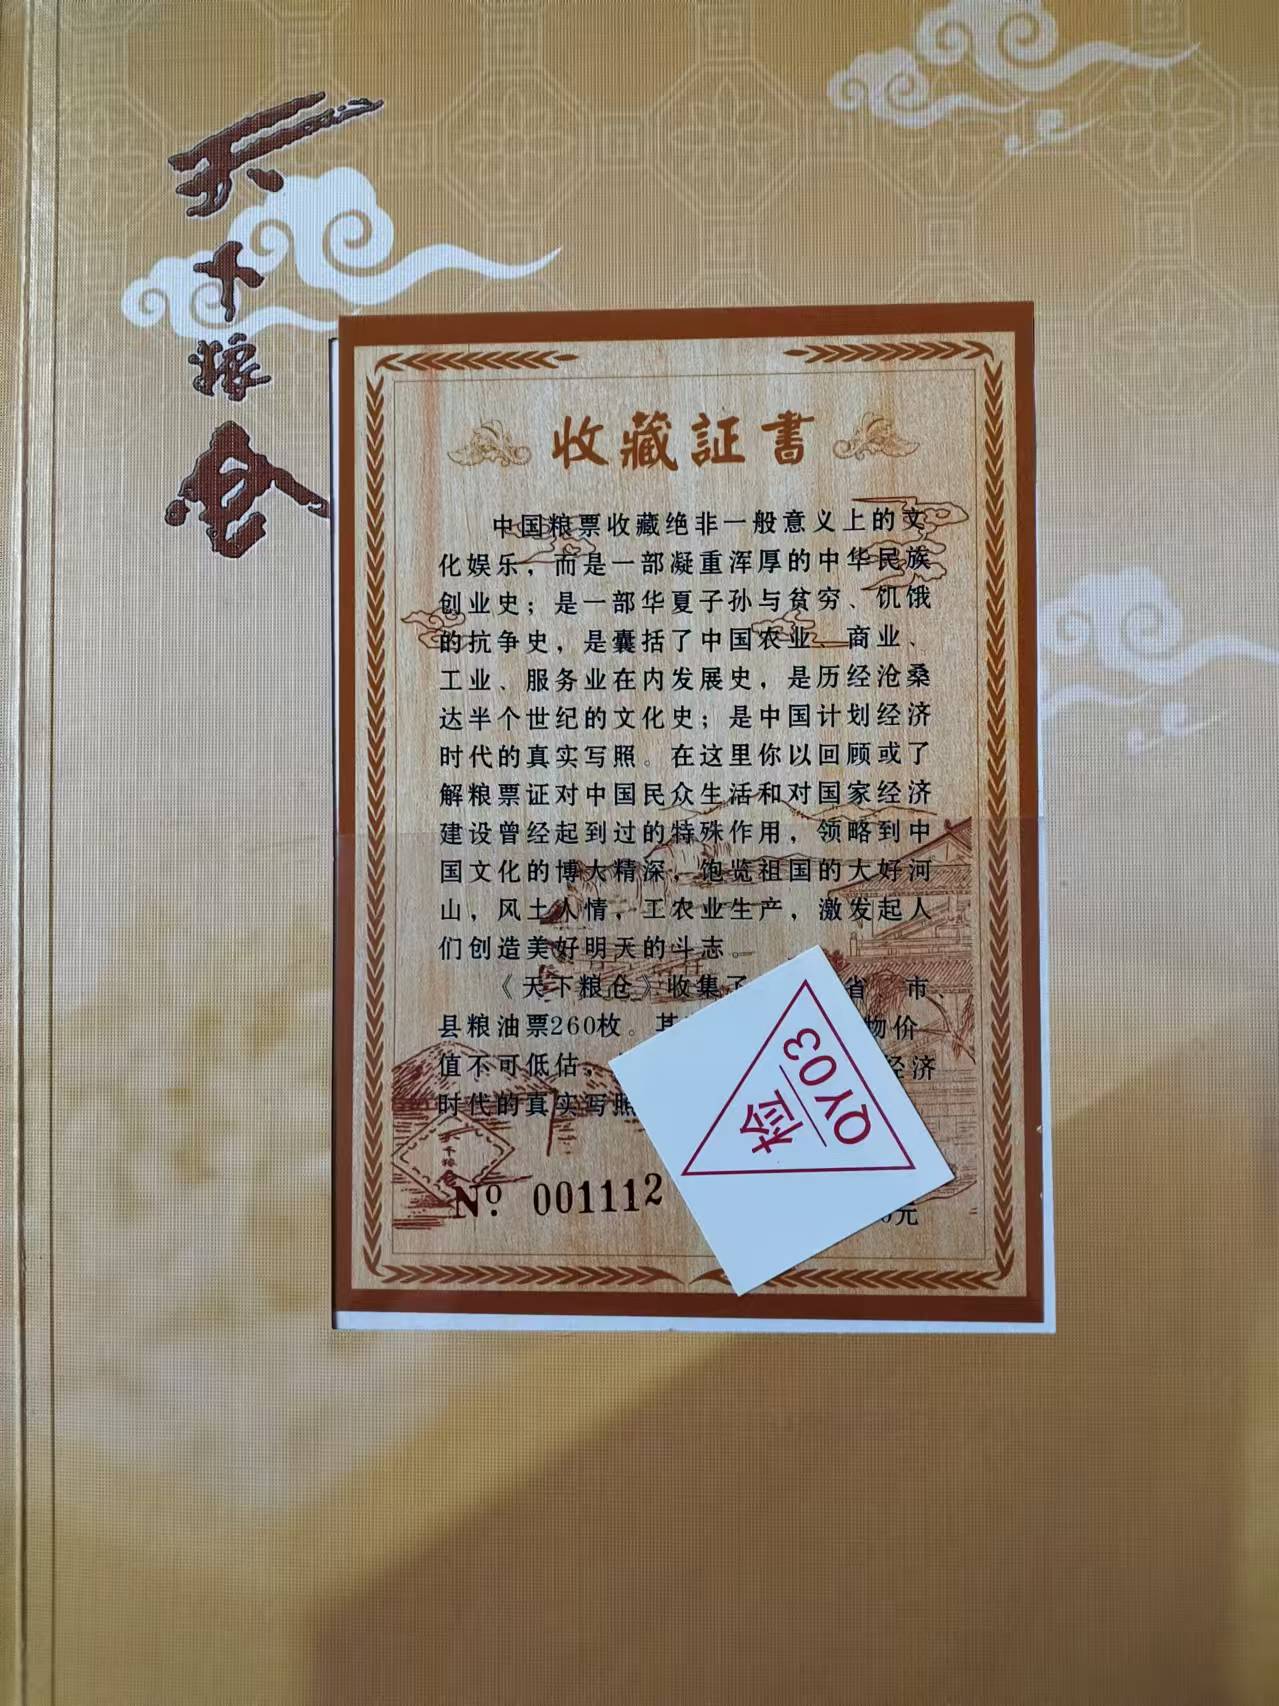 天下粮仓
收藏証書
中国粮票收藏绝非一般意义上的文
化娱乐，而是一部凝重浑厚的中华民族
创业史；是一部华夏子孙与贫穷、饥饿
的抗争史，是囊括了中国农业、商业、
工业、服务业在内发展史，是历经沧桑
达半个世纪的文化史；是中国计划经济
时代的真实写照。在这里你以回顾或了
解粮票证对中国民众生活和对国家经济
建设曾经起到过的特殊作用，领略到中
国文化的博大精深，饱览祖国的大好河
山，风土人情，工农业生产，激发起人
们创造美好明天的斗志。
《天下粮仓》收集了 省 市、
县粮油票260枚。其 物价
值不可低估， 经济
时代的真实写照
天下粮仓
№ 001112
元
检
QY03